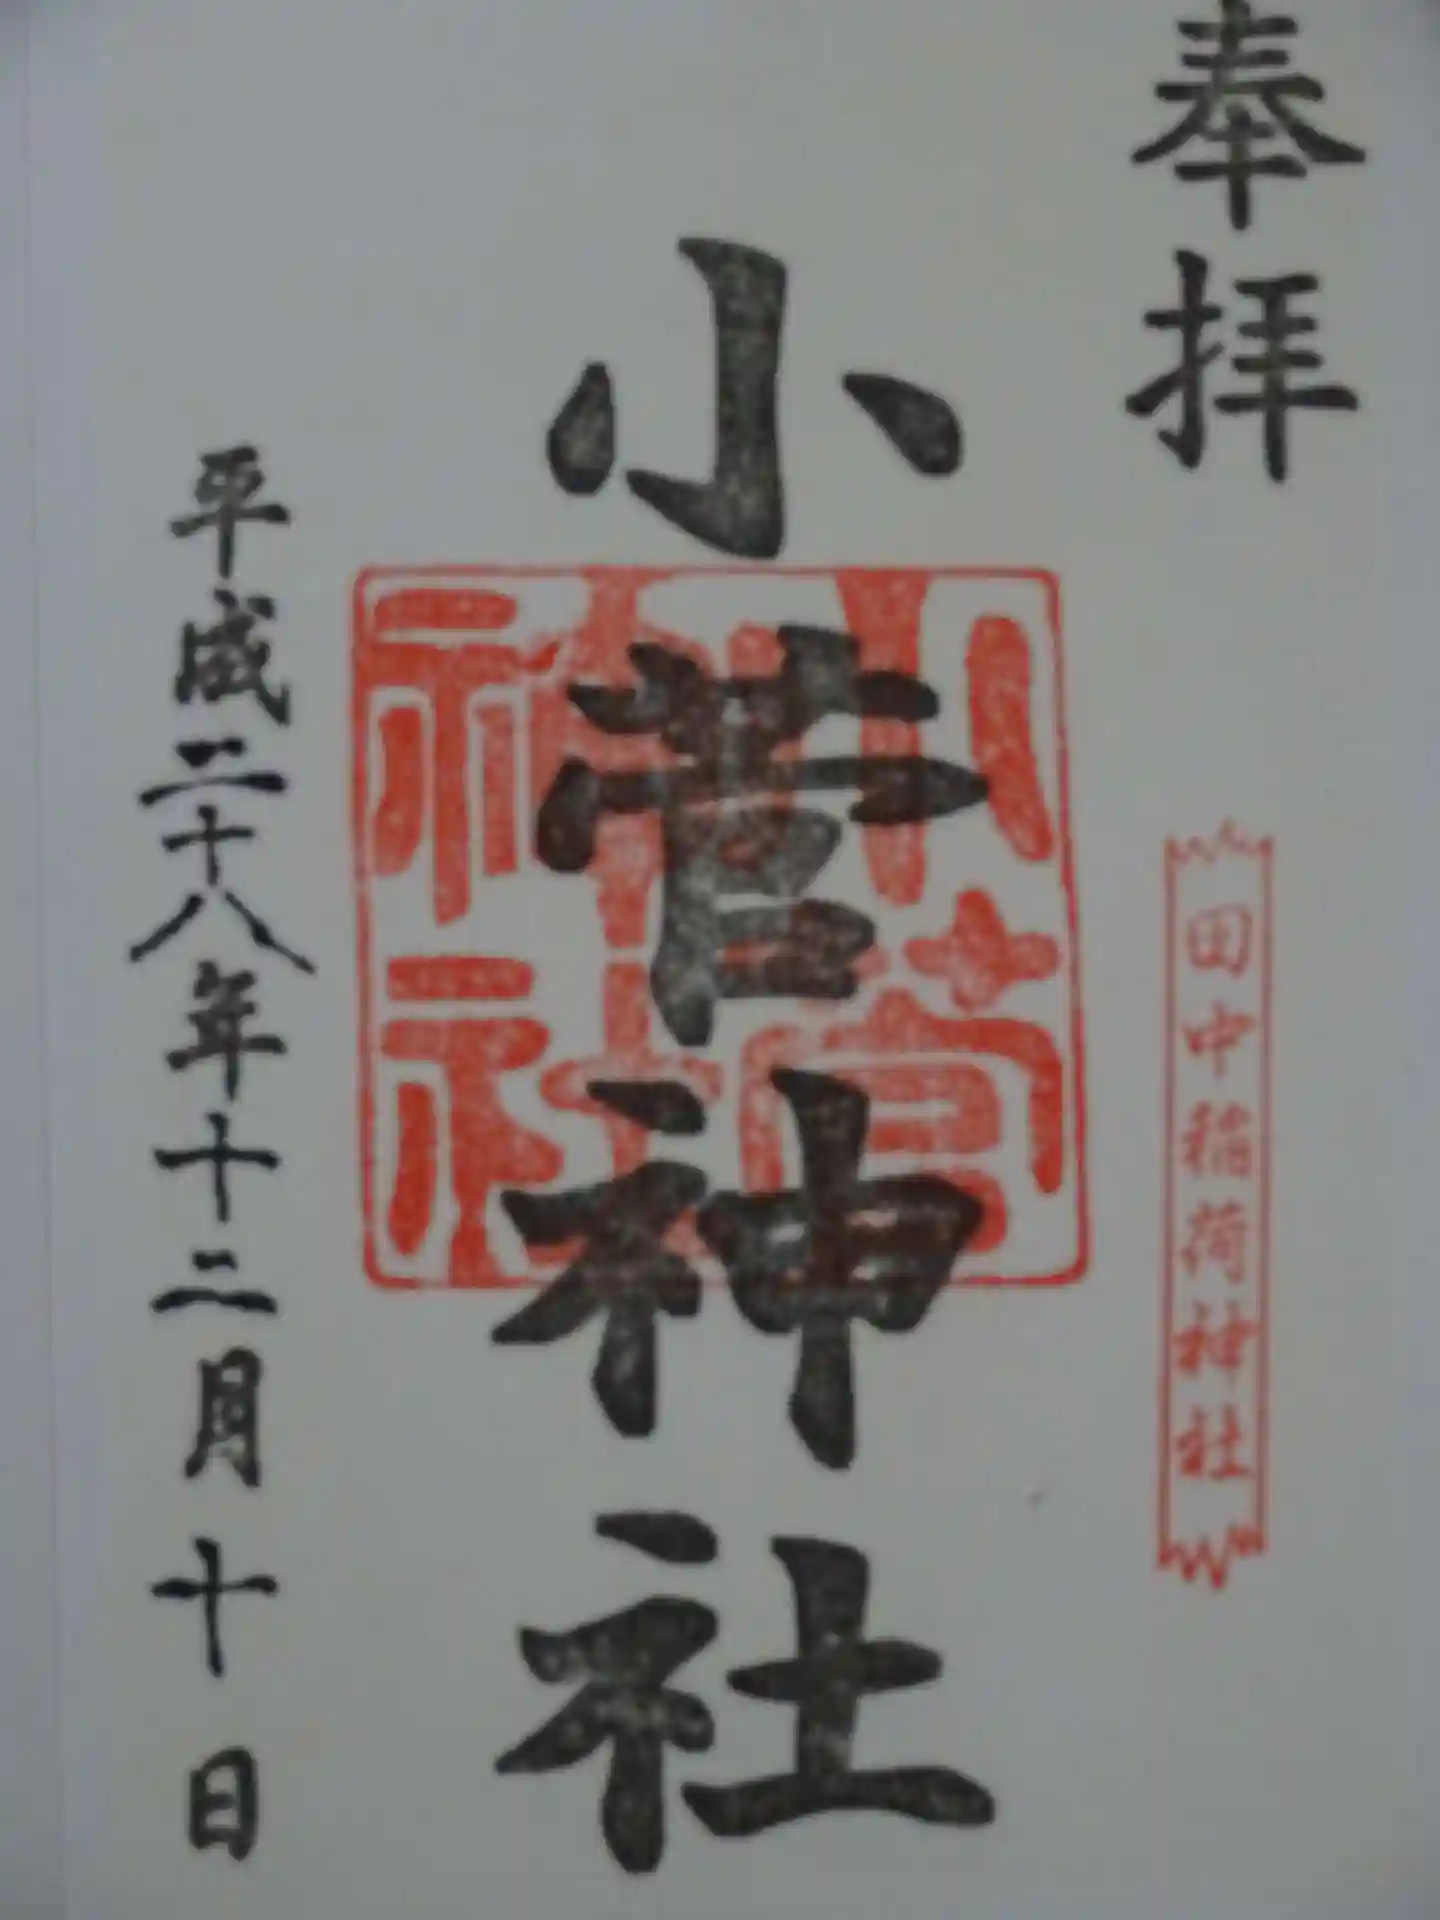 奉拝
田中稲荷神社
小菅神社
小菅神社
平成二十八年十二月十日